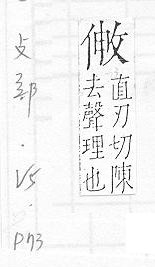 直刃切陳
去聲理也
攴部．V5．P73